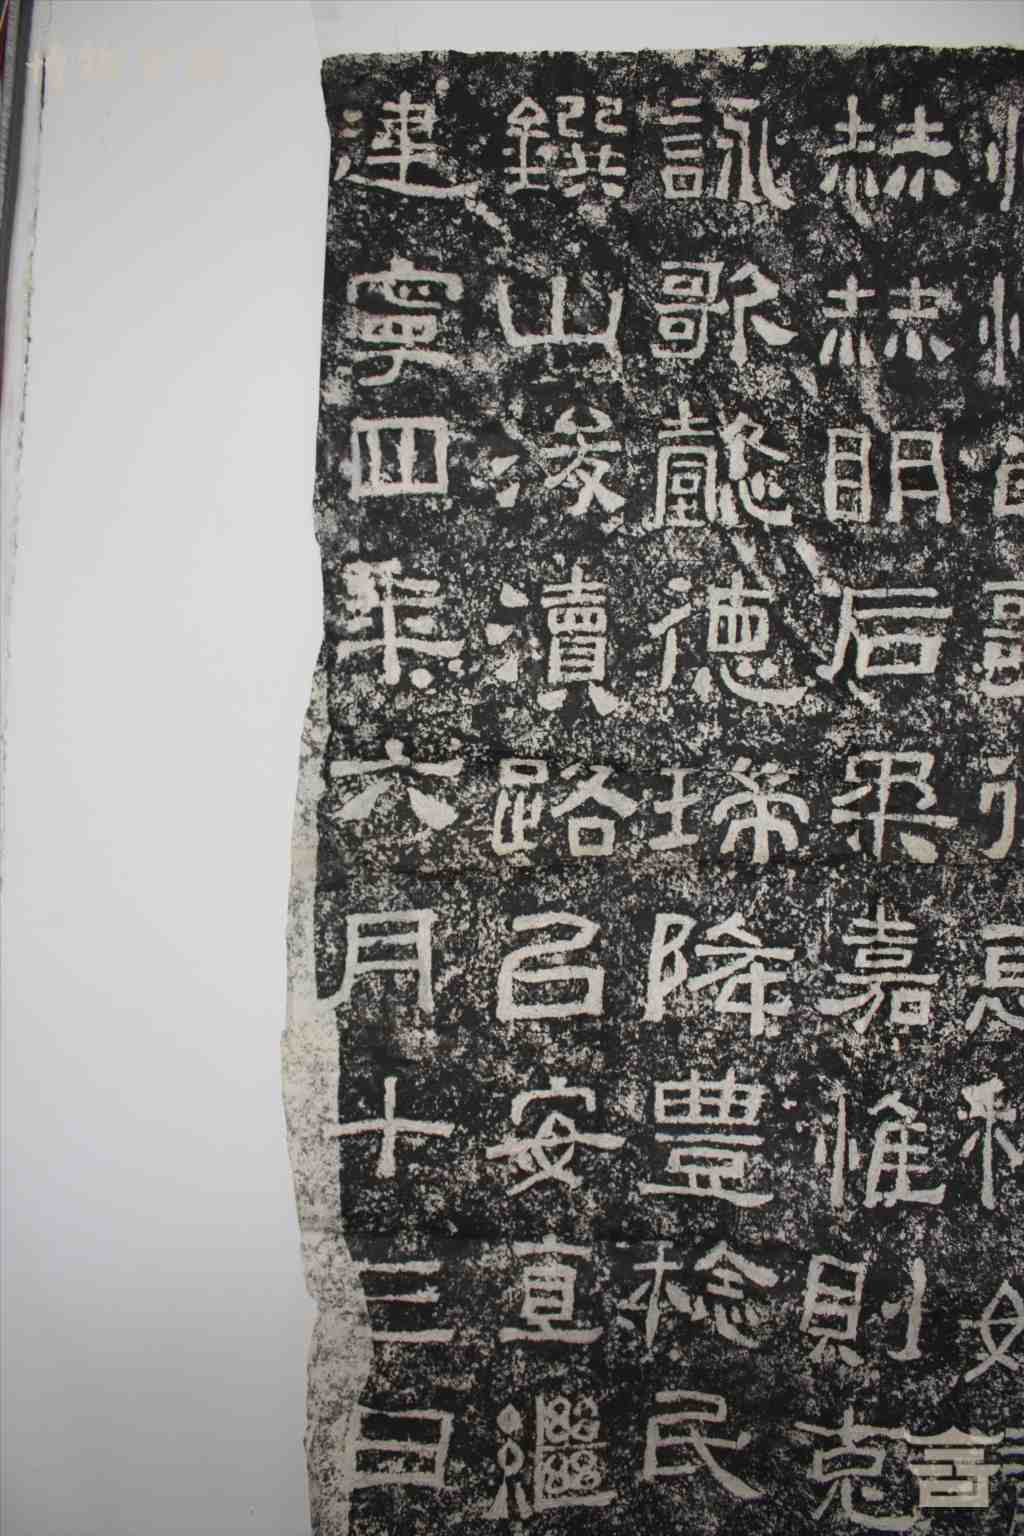 赫赫明后柔嘉惟則克
詠歌懿德瑞降豐稔民
鐉山浚瀆路㠯安直繼
建寧四年六月十三日